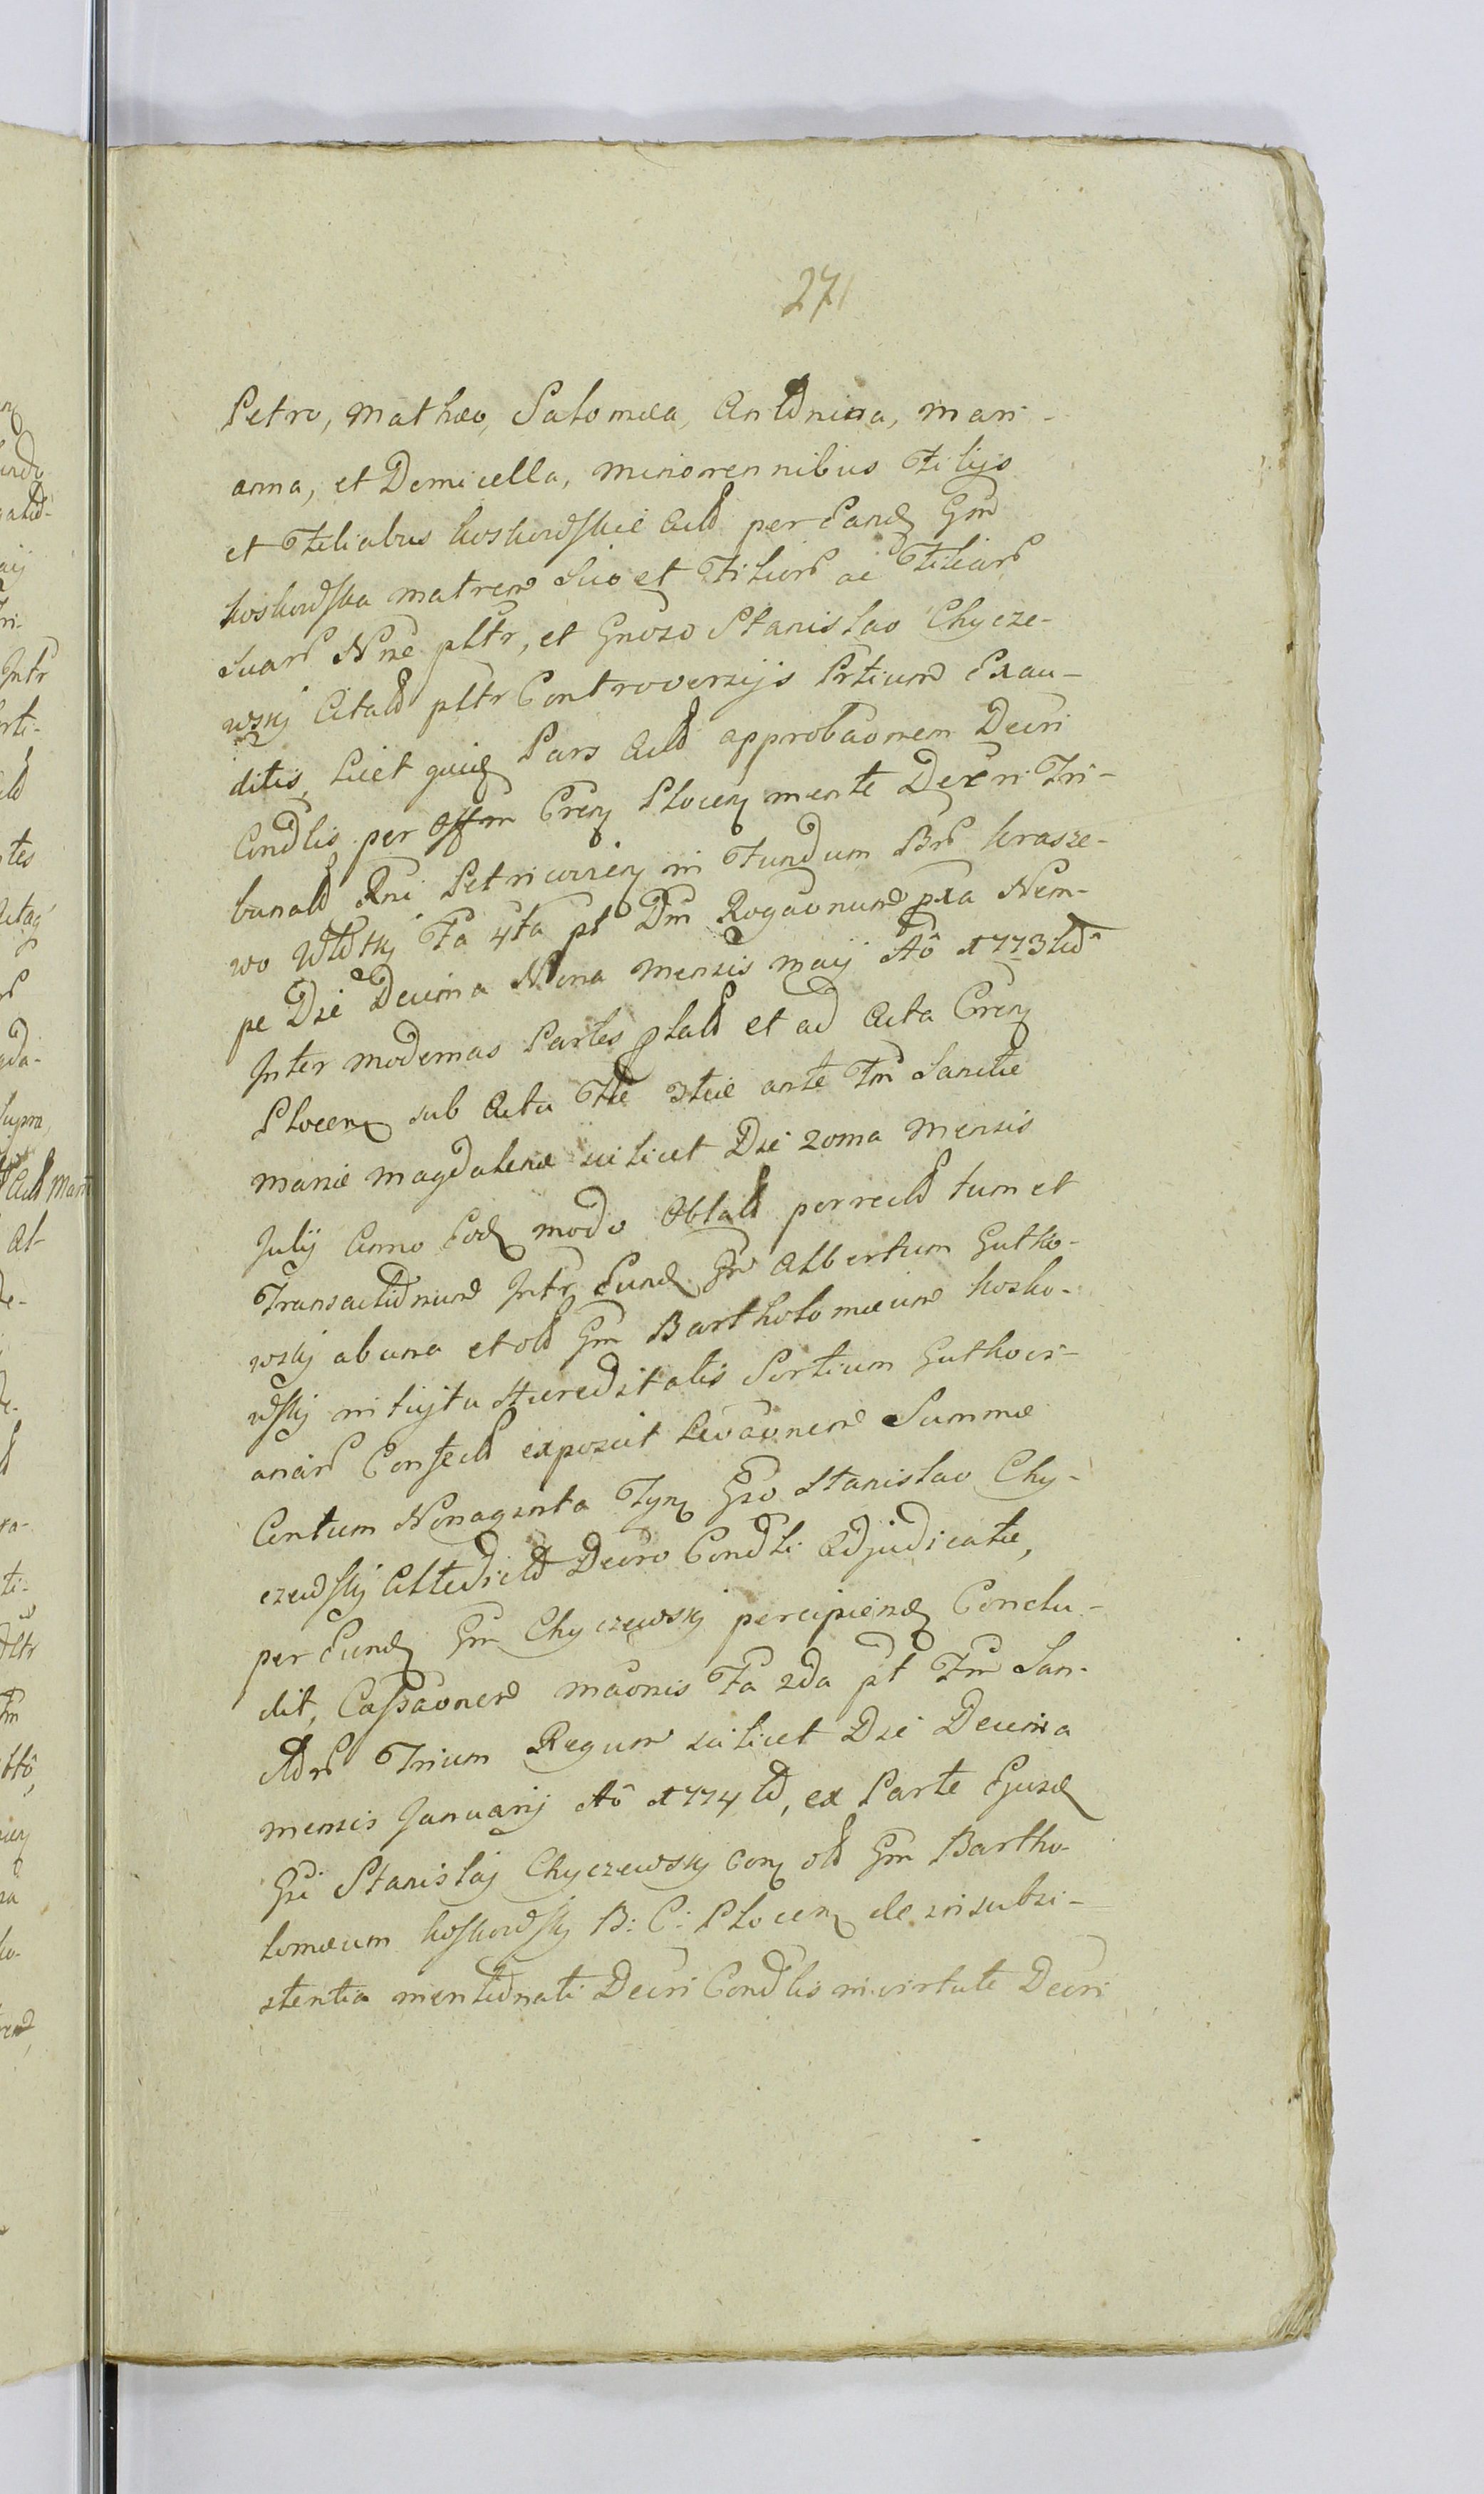 271
Petro, Mathæo, Salomæa, Antonina, Mari-
anna, et Domicella, minorennibus Filijs
et Filiabus Koskowskie Act per Eand Gm
Koskowska matrem Suo et Filior ac Filiar
Suar Nne pltr, et Gnoso Stanislao Chycze-
wskj Citato pltr Controversijs Prtium Exau-
ditis, Licet quid Pars Act approbaonem Decri
Condlis per Offm Cren Plocen mente Decri Tri-
bunalt Rni Petricovien in Fundum Br Krasze-
wo Wtoskj Fa 4ta pt Dm Rogaonum pxa Nem-
pe Die Decima Nona Mensis Maij Ao 1773tio
Inter modernas Partes plato et ad Acta Cren
Plocen sub Actu Fæ 3tiæ ante Fm Sanctæ
Mariæ Magdalenæ scilicet Die 20ma Mensis
Julij Anno Eod modo Oblato porrecto tum et
Transactionum Intr Eund Gm Albertum Gutko-
wskj ab una et olt Gm Bartholomæum Kosko-
wskj intuitu Hæreditatis Sortium Gutkovi-
anar Confecto exposcit Levaonem Summæ
Centum Nonaginta Tyn Gso Stanislao Chy-
czewskj Attedicto Decro Condli Adjudicatæ,
per Eund Gm Chyczewskj percipiend Conclu-
dit, Cassaonem maonis Fa 2da pt Fm San-
ctor Trium Regum scilicet Die Decima
mensis Januarij Ao 1774to, ex Parte Ejusd
Gsi Stanislaj Chyczewskj con olt Gm Bartho-
lomæum Koskowskj B: C: Plocen de insubsi-
stentia mentionati Decri Condlis in virtute Decri